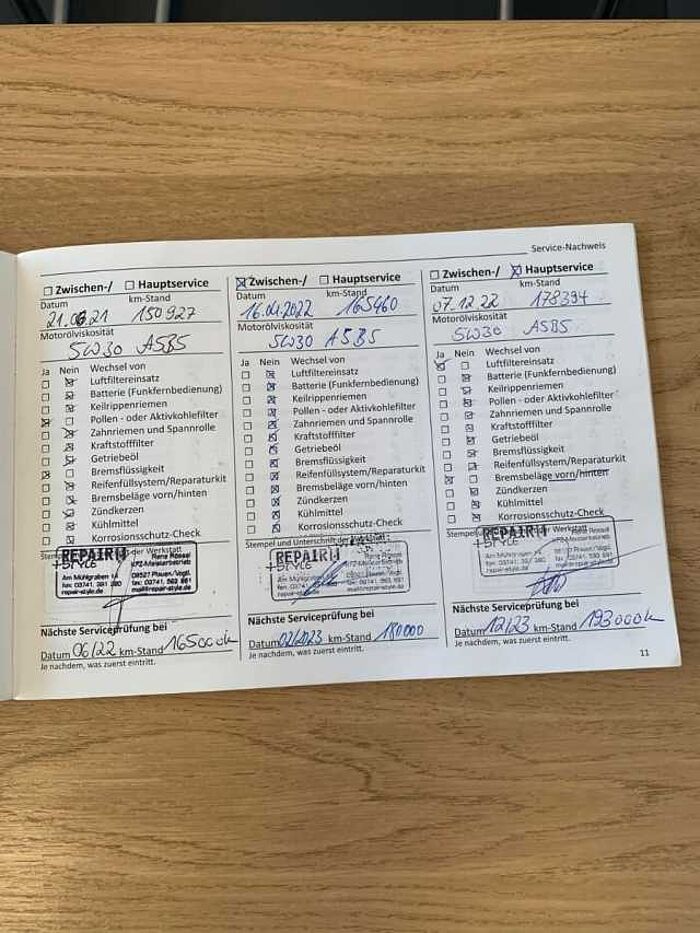 Service-Nachweis
☐ Zwischen-/ ☐ Hauptservice
Datum km-Stand
21.06.21 150927
Motorölviskosität
5W30 A5B5
Ja Nein Wechsel von
Luftfiltereinsatz
Batterie (Funkfernbedienung)
Keilrippenriemen
Pollen - oder Aktivkohlefilter
Zahnriemen und Spannrolle
Kraftstofffilter
Getriebeöl
Bremsflüssigkeit
Reifenfüllsystem/Reparaturkit
Bremsbeläge vorn/hinten
Zündkerzen
Kühlmittel
Korrosionsschutz-Check
der Werkstatt
REPAIR
+STYLE
Rene Rössel
KFZ-Meisterbetrieb
Am Mühlgraben 14
08527 Plauen/Vogtl.
fon: 03741. 391 280
fax: 03741. 593 691
repair-style.de
mail@repair-style.de
Nächste Serviceprüfung bei
Datum 06/22 km-Stand 165000k
Je nachdem, was zuerst eintritt.
☒ Zwischen-/ ☐ Hauptservice
Datum km-Stand
2022 165460
Motorölviskosität
5W30 A5B5
Ja Nein Wechsel von
Luftfiltereinsatz
Batterie (Funkfernbedienung)
Keilrippenriemen
Pollen - oder Aktivkohlefilter
Zahnriemen und Spannrolle
Kraftstofffilter
Getriebeöl
Bremsflüssigkeit
Reifenfüllsystem/Reparaturkit
Bremsbeläge vorn/hinten
Zündkerzen
Kühlmittel
Korrosionsschutz-Check
Stempel und Unterschrift der Werkstatt
REPAIR
+STYLE
Rene Rössel
KFZ-Meisterbetrieb
Am Mühlgraben 14
08527 Plauen/Vogtl.
repair-style.de
mail@repair-style.de
Nächste Serviceprüfung bei
Datum 02/2023 km-Stand 180000
Je nachdem, was zuerst eintritt.
☐ Zwischen-/ ☒ Hauptservice
Datum km-Stand
07.12.22 178394
Motorölviskosität
5W30 A5B5
Ja Nein Wechsel von
Luftfiltereinsatz
Batterie (Funkfernbedienung)
Keilrippenriemen
Pollen - oder Aktivkohlefilter
Zahnriemen und Spannrolle
Kraftstofffilter
Getriebeöl
Bremsflüssigkeit
Reifenfüllsystem/Reparaturkit
Bremsbeläge vorn/hinten
Zündkerzen
Kühlmittel
Korrosionsschutz-Check
der Werkstatt
REPAIR
+STYLE
Rene Rössel
KFZ-Meisterbetrieb
Am Mühlgraben 14
08527 Plauen/Vogtl.
repair-style.de
mail@repair-style.de
Nächste Serviceprüfung bei
Datum 12/23 km-Stand 193000k
Je nachdem, was zuerst eintritt.
11